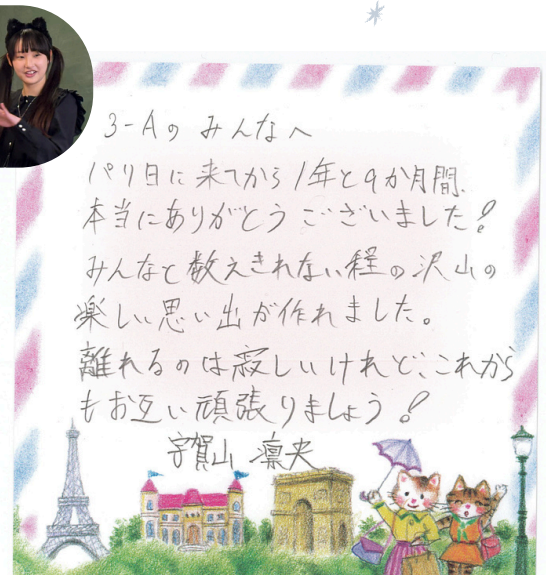 3-Aの みんなへ
パリ日に来てから1年と9か月間、
本当にありがとうございました!
みんなと数えきれない程の沢山の
楽しい思い出が作れました。
離れるのは寂しいけれど、これから
もお互い頑張りましょう!
宇賀山 凛央